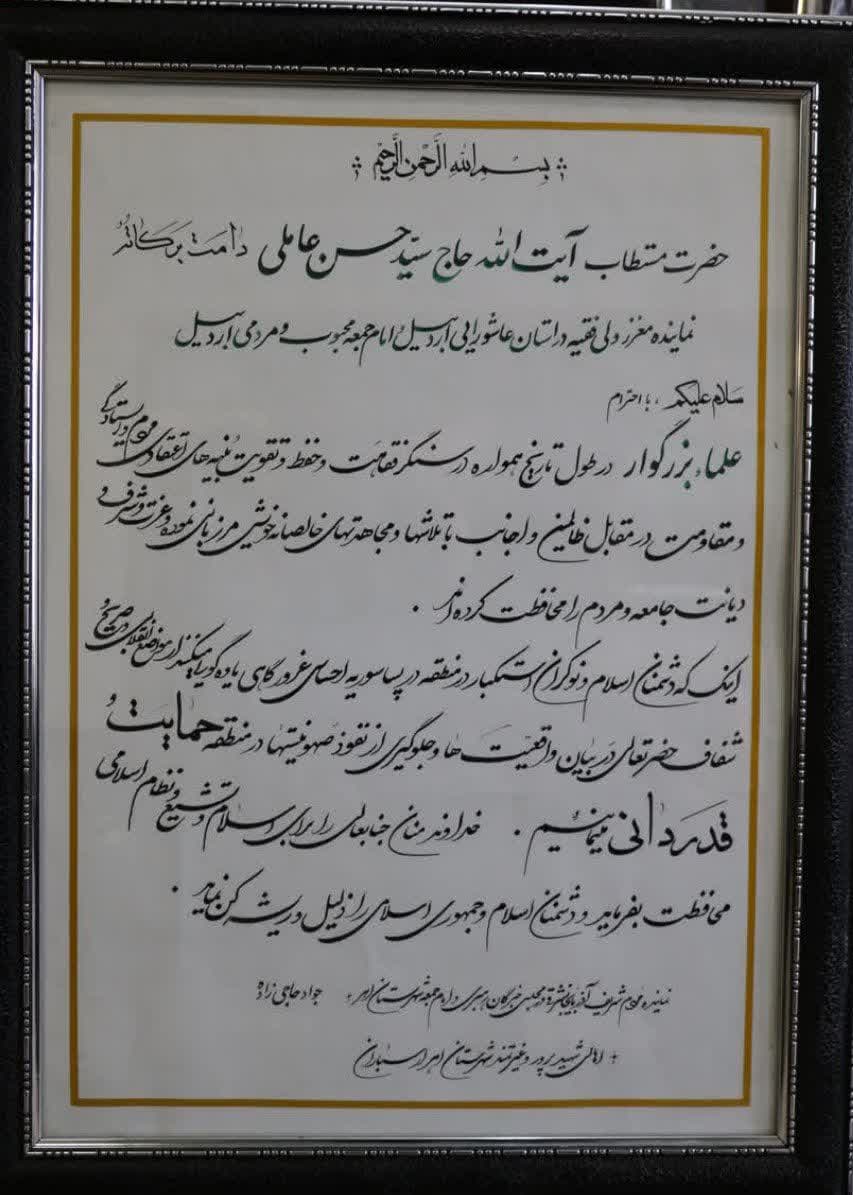 بسم الله الرحمن الرحیم
حضرت مستطاب آیت الله حاج سیّد حسن عاملی دامت برکاتهُ
نماینده معزز ولی فقیه در استان عاشورایی اردبیل و امام جمعه محبوب و مردمی اردبیل
سلام علیکم ، با احترام
علماء بزرگوار در طول تاریخ همواره در سنگر فقاهت و حفظ و تقویت بُنیه های اعتقادی مردم و ایستادگی
و مقاومت در مقابل ظالمین و اجانب با تلاشها و مجاهدتهای خالصانه خویش مرزبانی نموده و عزت و شرف و
دیانت جامعه و مردم را محافظت کرده اند .
اینک که دشمنان اسلام و نوکران استکبار در منطقه در پسا سوریه احساس غرور گاهی یاوه گویی میکنند از مواضع انقلابی و صریح و
شفاف حضرتعالی در بیان واقعیّت ها و جلوگیری از نفوذ صهونیستها در منطقه حمایت و
قدردانی مینمائیم . خداوند منان جنابعالی را برای اسلام و تشیع و نظام اسلامی
محافظت بفرماید و دشمنان اسلام و جمهوری اسلامی را ذلیل و ریشه کن نماید .
نماینده مردم شریف آذربایجانشرقی در مجلس خبرگان رهبری و امام جمعه شهرستان اهر + جواد حاجی زاده
+ اهالی شهید پرور و غیرتمند شهرستان اهر ارسباران